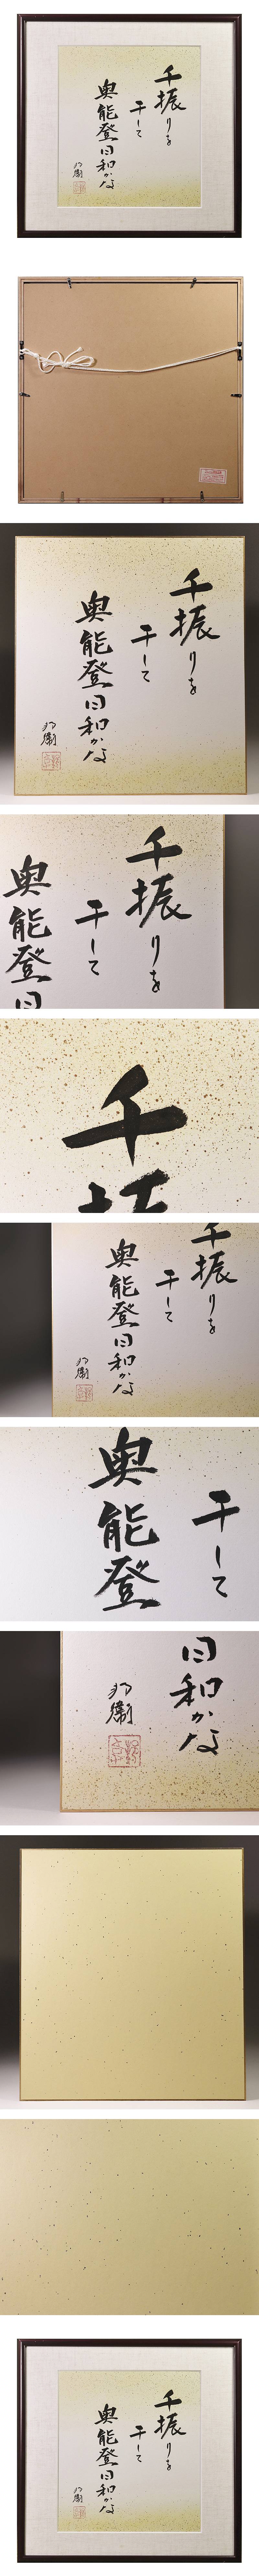 千振りを
干して
奥能登日和かな
千振りを
干して
奥能登日和かな
千振りを
干して
奥能登日
千
千振りを
干して
奥能登日和かな
干して
奥能登
日和かな
千振りを
干して
奥能登日和かな